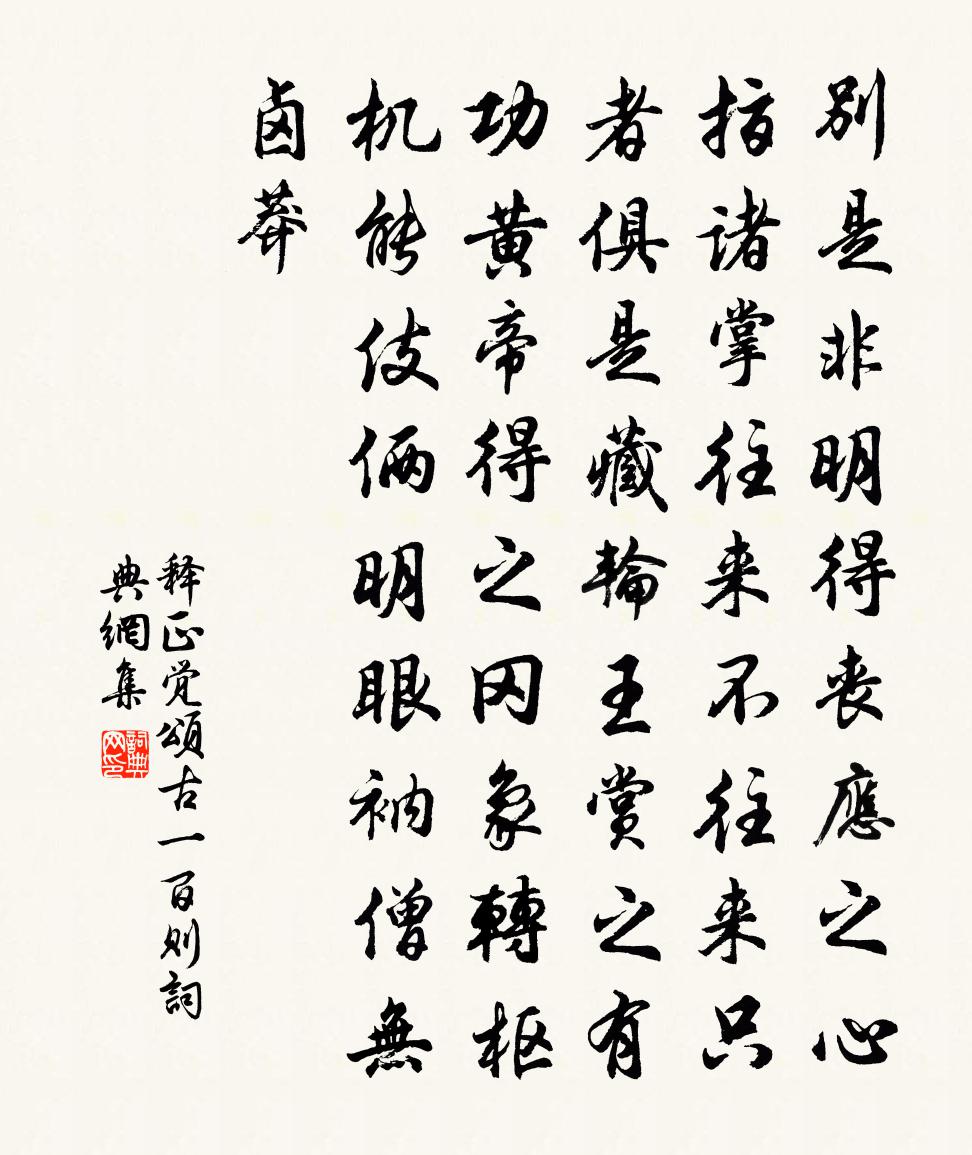 別是非明得丧應之心
指诸掌往来不往来只
者俱是藏輪王赏之有
功黄帝得之罔象轉枢
机能伎俩明眼衲僧無
卤莽
释正觉頌古一百则詞
典網集
詞典网印